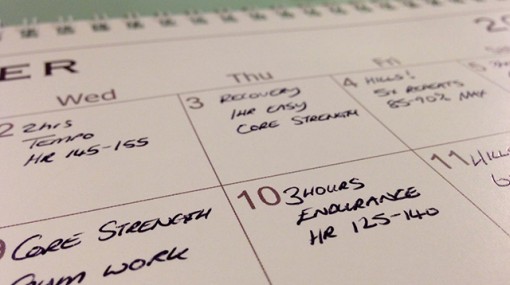 ER
20
Wed
Thu
Fri
2 2hrs
TEMPO
HR 145-155
3 RECOVERY
1HR EASY
CORE STRENGTH
4 HILLS!
5x REPEATS
85-90% MAX
5
9 CORE STRENGTH
GYM WORK
10 3HOURS
ENDURANCE
HR 125-140
11 HILLS